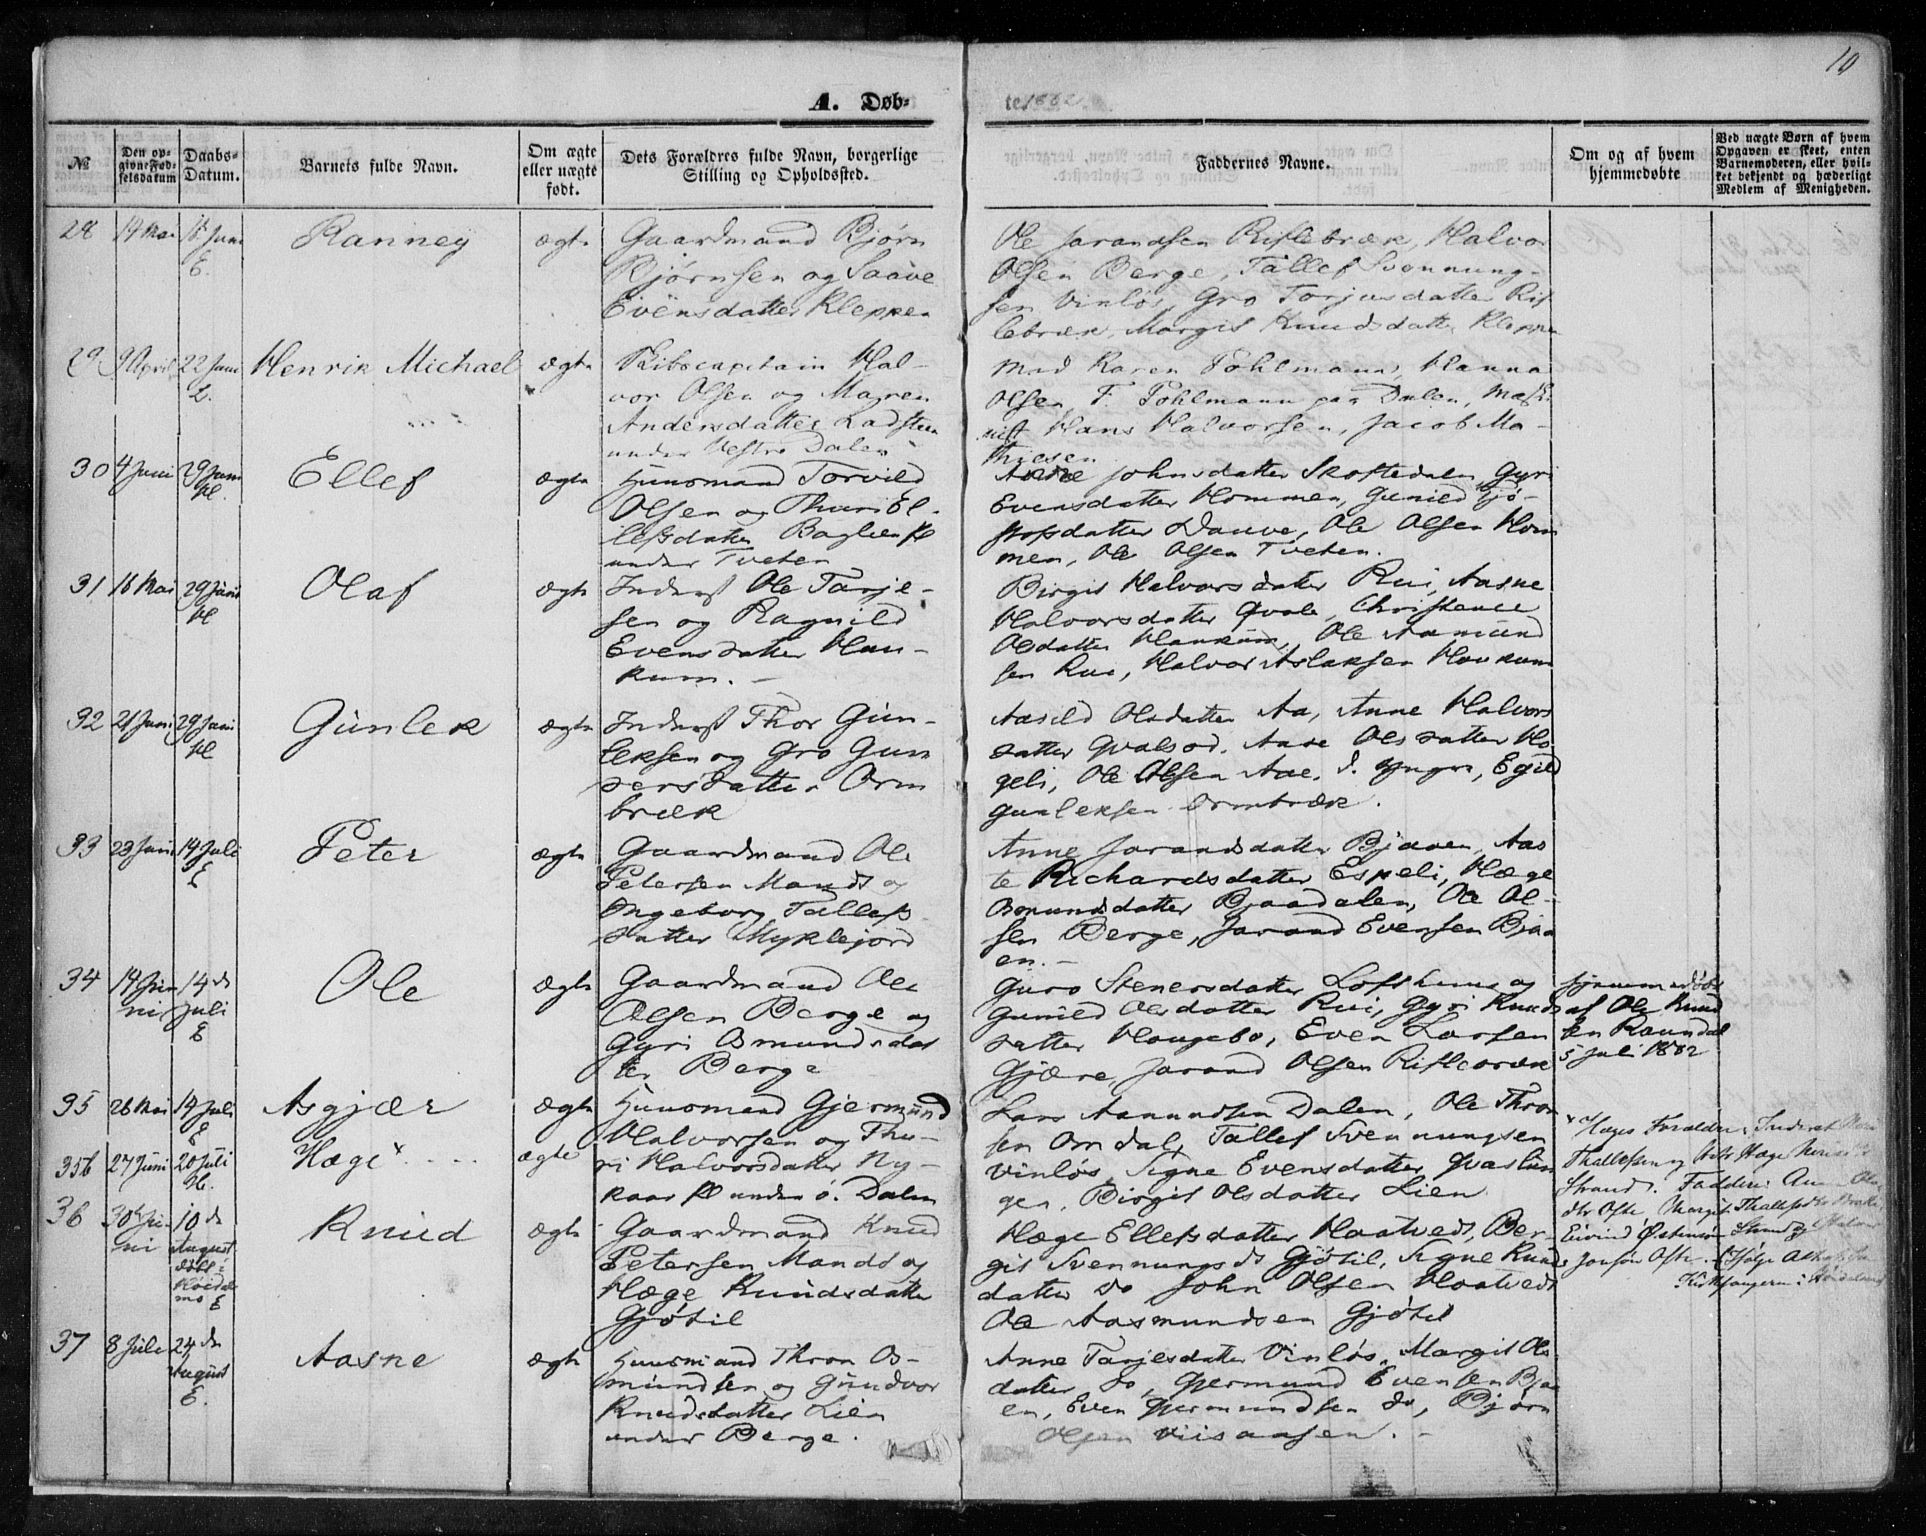 10
A. Døb-
te 1882
№
Den op-
givne Fød-
selsdatum
Daabs-
Datum.
Barnets fulde Navn.
Om ægte
eller uægte
født.
Dets Forældres fulde Navn, borgerlige
Stilling og Opholdssted.
Faddernes Navne.
Om og af hvem
hjemmedøbte
Ved uægte Børn af hvem
Opgaven er skeet, enten
Barnemoderen, eller hvil-
ket bekjendt og hæderligt
Medlem af Menigheden.
28 19 Mai 18 Juni
E.
Ranney
ægte
Gaardmand Bjørn
Bjørnsen og Saave
Evensdatter Kleppen
Ole Jarandsen Riflebræk, Halvor
Olsen Berge, Tallef Svennung-
sen Vinløs, Gro Torjusdatter Rif
lebræk, Margit Knudsdatter Kleppen
29 9 April 22 Juni
E.
Henrik Michael
ægte
Skibscapitain Hal-
vor Olsen og Maren
Andersdatter Ladsteen
under Vestre Dalen
Mad Karen Pohlmann, Hanna
Olsen, F. Pohlmann paa Dalen,
Hans Halvorsen, Jacob Ma-
thiesen
30 4 Juni 29 Juni
Hl.
Ellef
ægte
Huusmand Torvild
Olsen og Thuri El-
lefsdatter
under Tveten
Aasne Johnsdatter Skoftedalen, Gyri
Evensdatter Hommen, Gunild Gjø-
stofsdatter Dauve, Ole Olsen Hom
men, Ole Olsen Tveten.
31 16 Mai 29 Juni
Hl
Olaf
ægte
Inderst Ole Tarje-
sen og Ragnild
Evensdatter Hau-
kum. -
Birgit Halvorsdatter Rui, Aasne
Halvorsdatter Qvale, Christence
Olsdatter Haukum, Ole Aamund
sen Rui, Halvor Aslaksen Haukum
32 21 Juni 29 Juni
Hl
Gunlek
ægte
Inderst Thor Gun-
leksen og Gro Gun
dersdatter Orm
bræk
Aasild Olsdatter Aa, Anne Halvors
datter Qvalsod, Aase Olsdatter Ho-
geli, Ole Olsen Aae, d. yngre, Egild
Gunleksen Ormbræk.
33 23 Juni 14 Juli
E
Peter
ægte
Gaardmand Ole
Petersen Mandt og
Ingeborg Tallefs
datter Myklejord
Anne Jarandsdatter Bjaaen, Aas
te Richardsdatter Espeli, Hæge
Osmundsdatter Bjaadalen, Ole Ol-
sen Berge, Jarand Evensen Bjaa
en. -
34 14 Ju-
ni
14 de
Juli
E
Ole
ægte
Gaardmand Ole
Olsen Berge og
Gyri Osmundsdat
ter Berge
Guro Stenersdatter Lofthuus og
Gunild Olsdatter Rui, Gyri Knuds
datter Haugebo, Even Larsen
Gjære, Jarand Olsen Riflebræk
hjemmedøbt
af Ole Knud
sen Raundal
5 Juli 1882
35 26 Mai 14 Juli
E
Asgjær
ægte
Huusmand Gjermund
Halvorsen og Thu-
ri Halvorsdatter Ny-
kaas Pl under ø. Dalen
Lars Aanundsen Dalen, Ole Thron
sen Omdal, Tallef Svennungsen
Vinløs, Signe Evensdatter Qvaslun
gen, Birgit Olsdatter Lien
35b 27 Juni 20 Juli
Hl.
Hæge x
ægte
x Hæges Forældre: Inderst
Thallefsen og Hæge
Strand. Faddere: Anne Ols
dtr Ofte, Margit Thallefsdtr
Eivind Strand, Halvor
Jonsøn Ofte.
Kirkesangeren i
36 30te Ju-
ni
10 de
August
døbt i
Høidals
mo E
Knud
ægte
Gaardmand Knud
Petersen Mandt og
Hæge Knudsdatter
Gjøtil
Hæge Ellefsdatter Haatvedt, Ber-
git Svennungsdt Gjøtil, Signe Knuds
datter do John Olsen Haatvedt
Ole Aasmundsen Gjøtil
37 8 Juli 24 de
August
E.
Aasne
ægte
Huusmand Thron Os-
mundsen og Gundvor
Knudsdatter Lien
under Berge.
Anne Tarjesdatter Vinløs, Margit Ols
datter do, Gjermund Evensen Bjaa
en, Even Gjermundsen do, Bjørn
Olsen